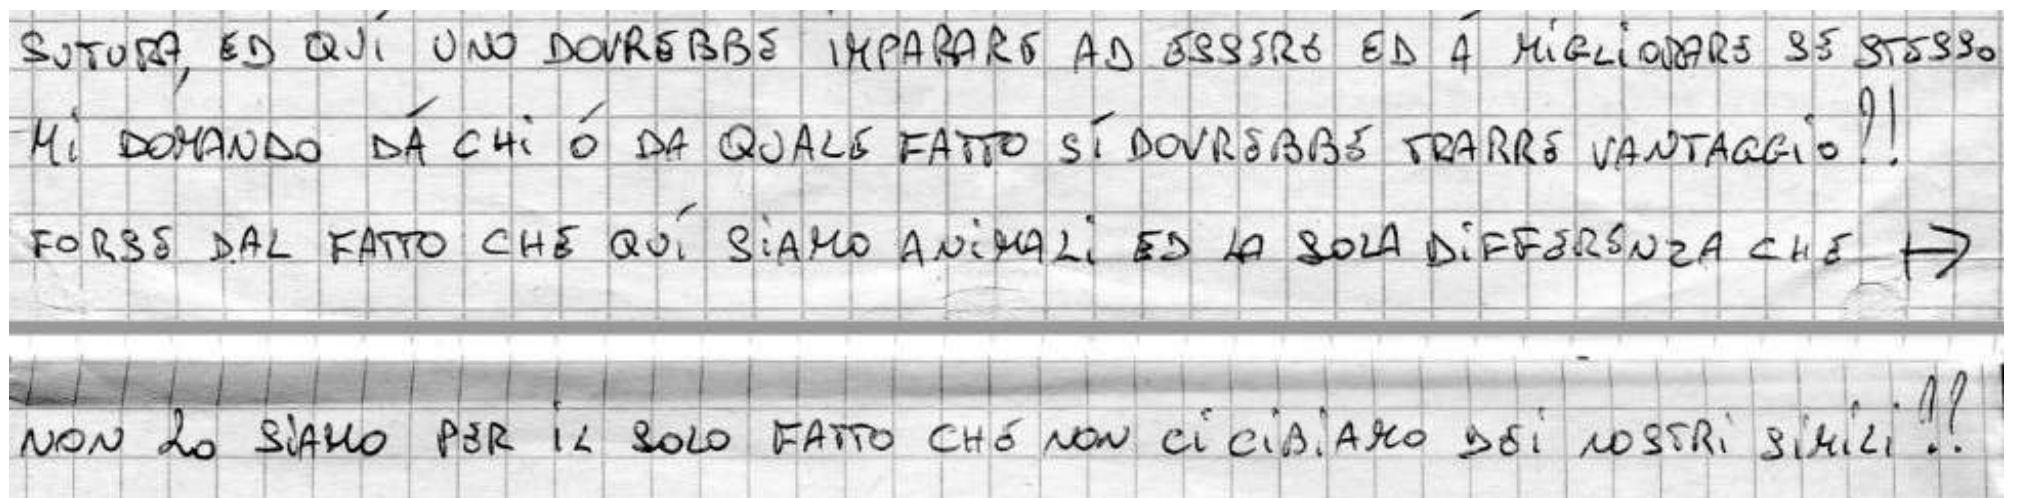 SUTURA, ED QUÍ UNO DOVREBBE IMPARARE AD ESSERE ED Á MIGLIORARE SE STESSO
MI DOMANDO DÁ CHI Ó DA QUALE FATTO SÍ DOVREBBE TRARRE VANTAGGIO!!
FORSE DAL FATTO CHE QUÍ SIAMO ANIMALI ED LA SOLA DIFFERENZA CHE →
NON LO SIAMO PER IL SOLO FATTO CHE NON CI CIBIAMO DEI NOSTRI SIMILI!!